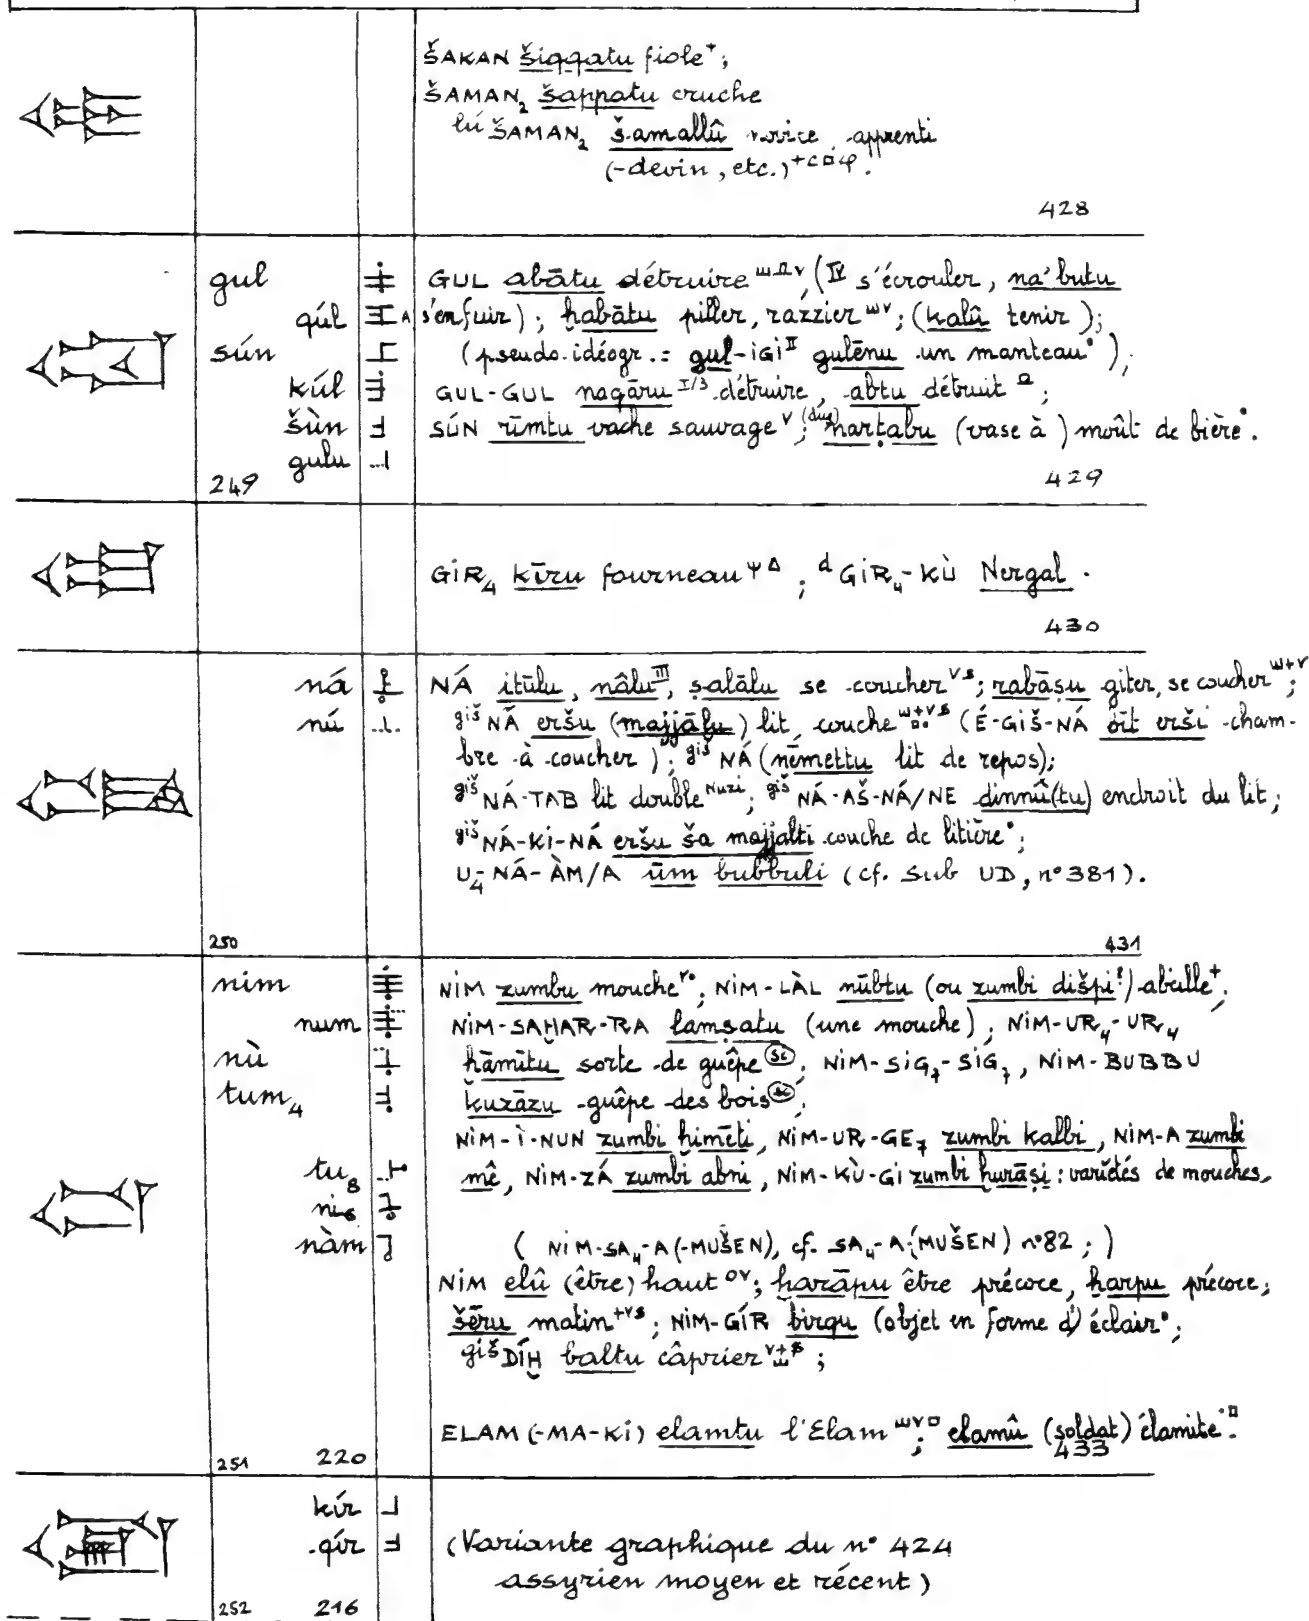 ŠAKAN šiqqatu fiole⁺;
ŠAMAN₂ šappatu cruche
lú ŠAMAN₂ šamallû novice, apprenti
(-devin, etc.)
428
gul GUL abātu détruire, (IV s'écrouler, na'butu
qúl s'enfuir); ḫabātu piller, razzier; (kalû tenir);
sún (pseudo-idéogr.: gul-IGI^II gulēnu un manteau°);
kúl GUL-GUL naqāru I/3 détruire, abtu détruit;
šùn SÚN rīmtu vache sauvage; (dug) narṭabu (vase à) moût de bière°.
gulu
249 429
GIR₄ kīru fourneau; ᵈGIR₄-KÙ Nergal.
430
ná NÁ itūlu, nâlu^III, ṣalālu se coucher; rabāṣu giter, se coucher;
nú ᵍⁱˢNÁ eršu (majjālu) lit, couche (É-GIŠ-NÁ bīt erši cham-
bre à coucher); ᵍⁱˢNÁ (nēmettu lit de repos);
ᵍⁱˢNÁ-TAB lit double ᴺᵘᶻⁱ; ᵍⁱˢNÁ-AŠ-NÁ/NE dinnû(tu) endroit du lit;
ᵍⁱˢNÁ-KI-NÁ eršu ša majjalti couche de litière°;
U₄-NÁ-ÀM/A ūm bubbuli (cf. sub UD, n° 381).
250 431
nim NIM zumbu mouche; NIM-LÀL nūbtu (ou zumbi dišpi?) abeille⁺,
num NIM-SAḪAR-RA lamṣatu (une mouche); NIM-UR₄-UR₄
nù ḫāmītu sorte de guêpe; NIM-SIG₇-SIG₇, NIM-BUBBU
tum₄ kuzāzu guêpe des bois;
NIM-Ì-NUN zumbi ḫimēti, NIM-UR-GE₇ zumbi kalbi, NIM-A zumbi
tu₈ mê, NIM-ZÁ zumbi abni, NIM-KÙ-GI zumbi ḫurāṣi: variétés de mouches,
ni₆
nàm (NIM-SA₄-A(-MUŠEN), cf. SA₄-A(MUŠEN) n°82;)
NIM elû (être) haut; ḫarāpu être précoce, ḫarpu précoce;
šēru matin; NIM-GÍR birqu (objet en forme d'éclair°;
ᵍⁱˢDÍḪ baltu câprier;
ELAM (-MA-KI) elamtu l'Elam; elamû (soldat) élamite
251 220 433
kír
qír (Variante graphique du n° 424
assyrien moyen et récent)
252 216